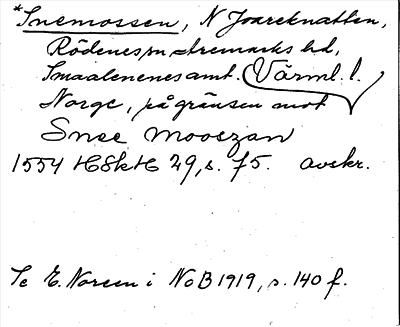 *Snemossen, N Joareknatten,
Rödenes sn Aremarks hd,
Smaalenenes amt. (Värml.).
Norge, på gränsen mot
Snee mooszan
1554 HSkH 29, s. 75. avskr.
Se E. Noreen i NoB 1919, s. 140 f.